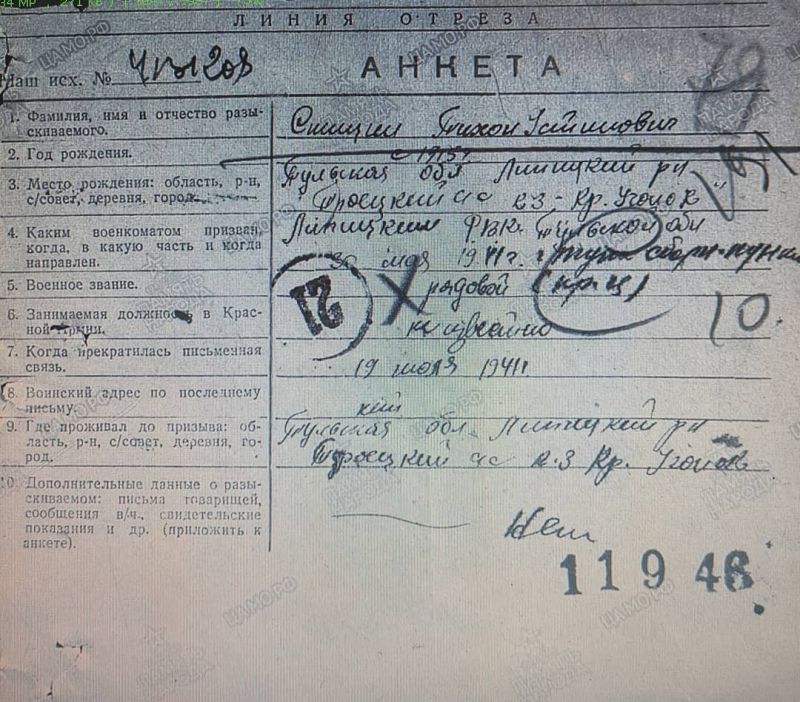 ЛИНИЯ ОТРЕЗА
Наш исх. №
АНКЕТА
1. Фамилия, имя и отчество разы-
скиваемого.
Тихон Устинович
2. Год рождения.
с 1915 г
3. Место рождения: область, р-н,
с/совет, деревня, город.
Тульская обл Липицкий рн
Троецкий сс к-з - Кр. Уголок
4. Каким военкоматом призван,
когда, в какую часть и когда
направлен.
Липицким РВК. Тульской обл
мая 1941г.
5. Военное звание.
21
рядовой
6. Занимаемая должность в Крас-
ной Армии.
неизвестно
10.
7. Когда прекратилась письменная
связь.
19 июля 1941г.
8. Воинский адрес по последнему
письму.
9. Где проживал до призыва: об-
ласть, р-н, с/совет, деревня, го-
род.
Тульская обл. Липицкий рн
Троецкий сс к-з Кр. Уголок
10. Дополнительные данные о разы-
скиваемом: письма товарищей,
сообщения в/ч., свидетельские
показания и др. (приложить к
анкете).
Нет
11946
ЦАМО.РФ
ПАМЯТЬ НАРОДА